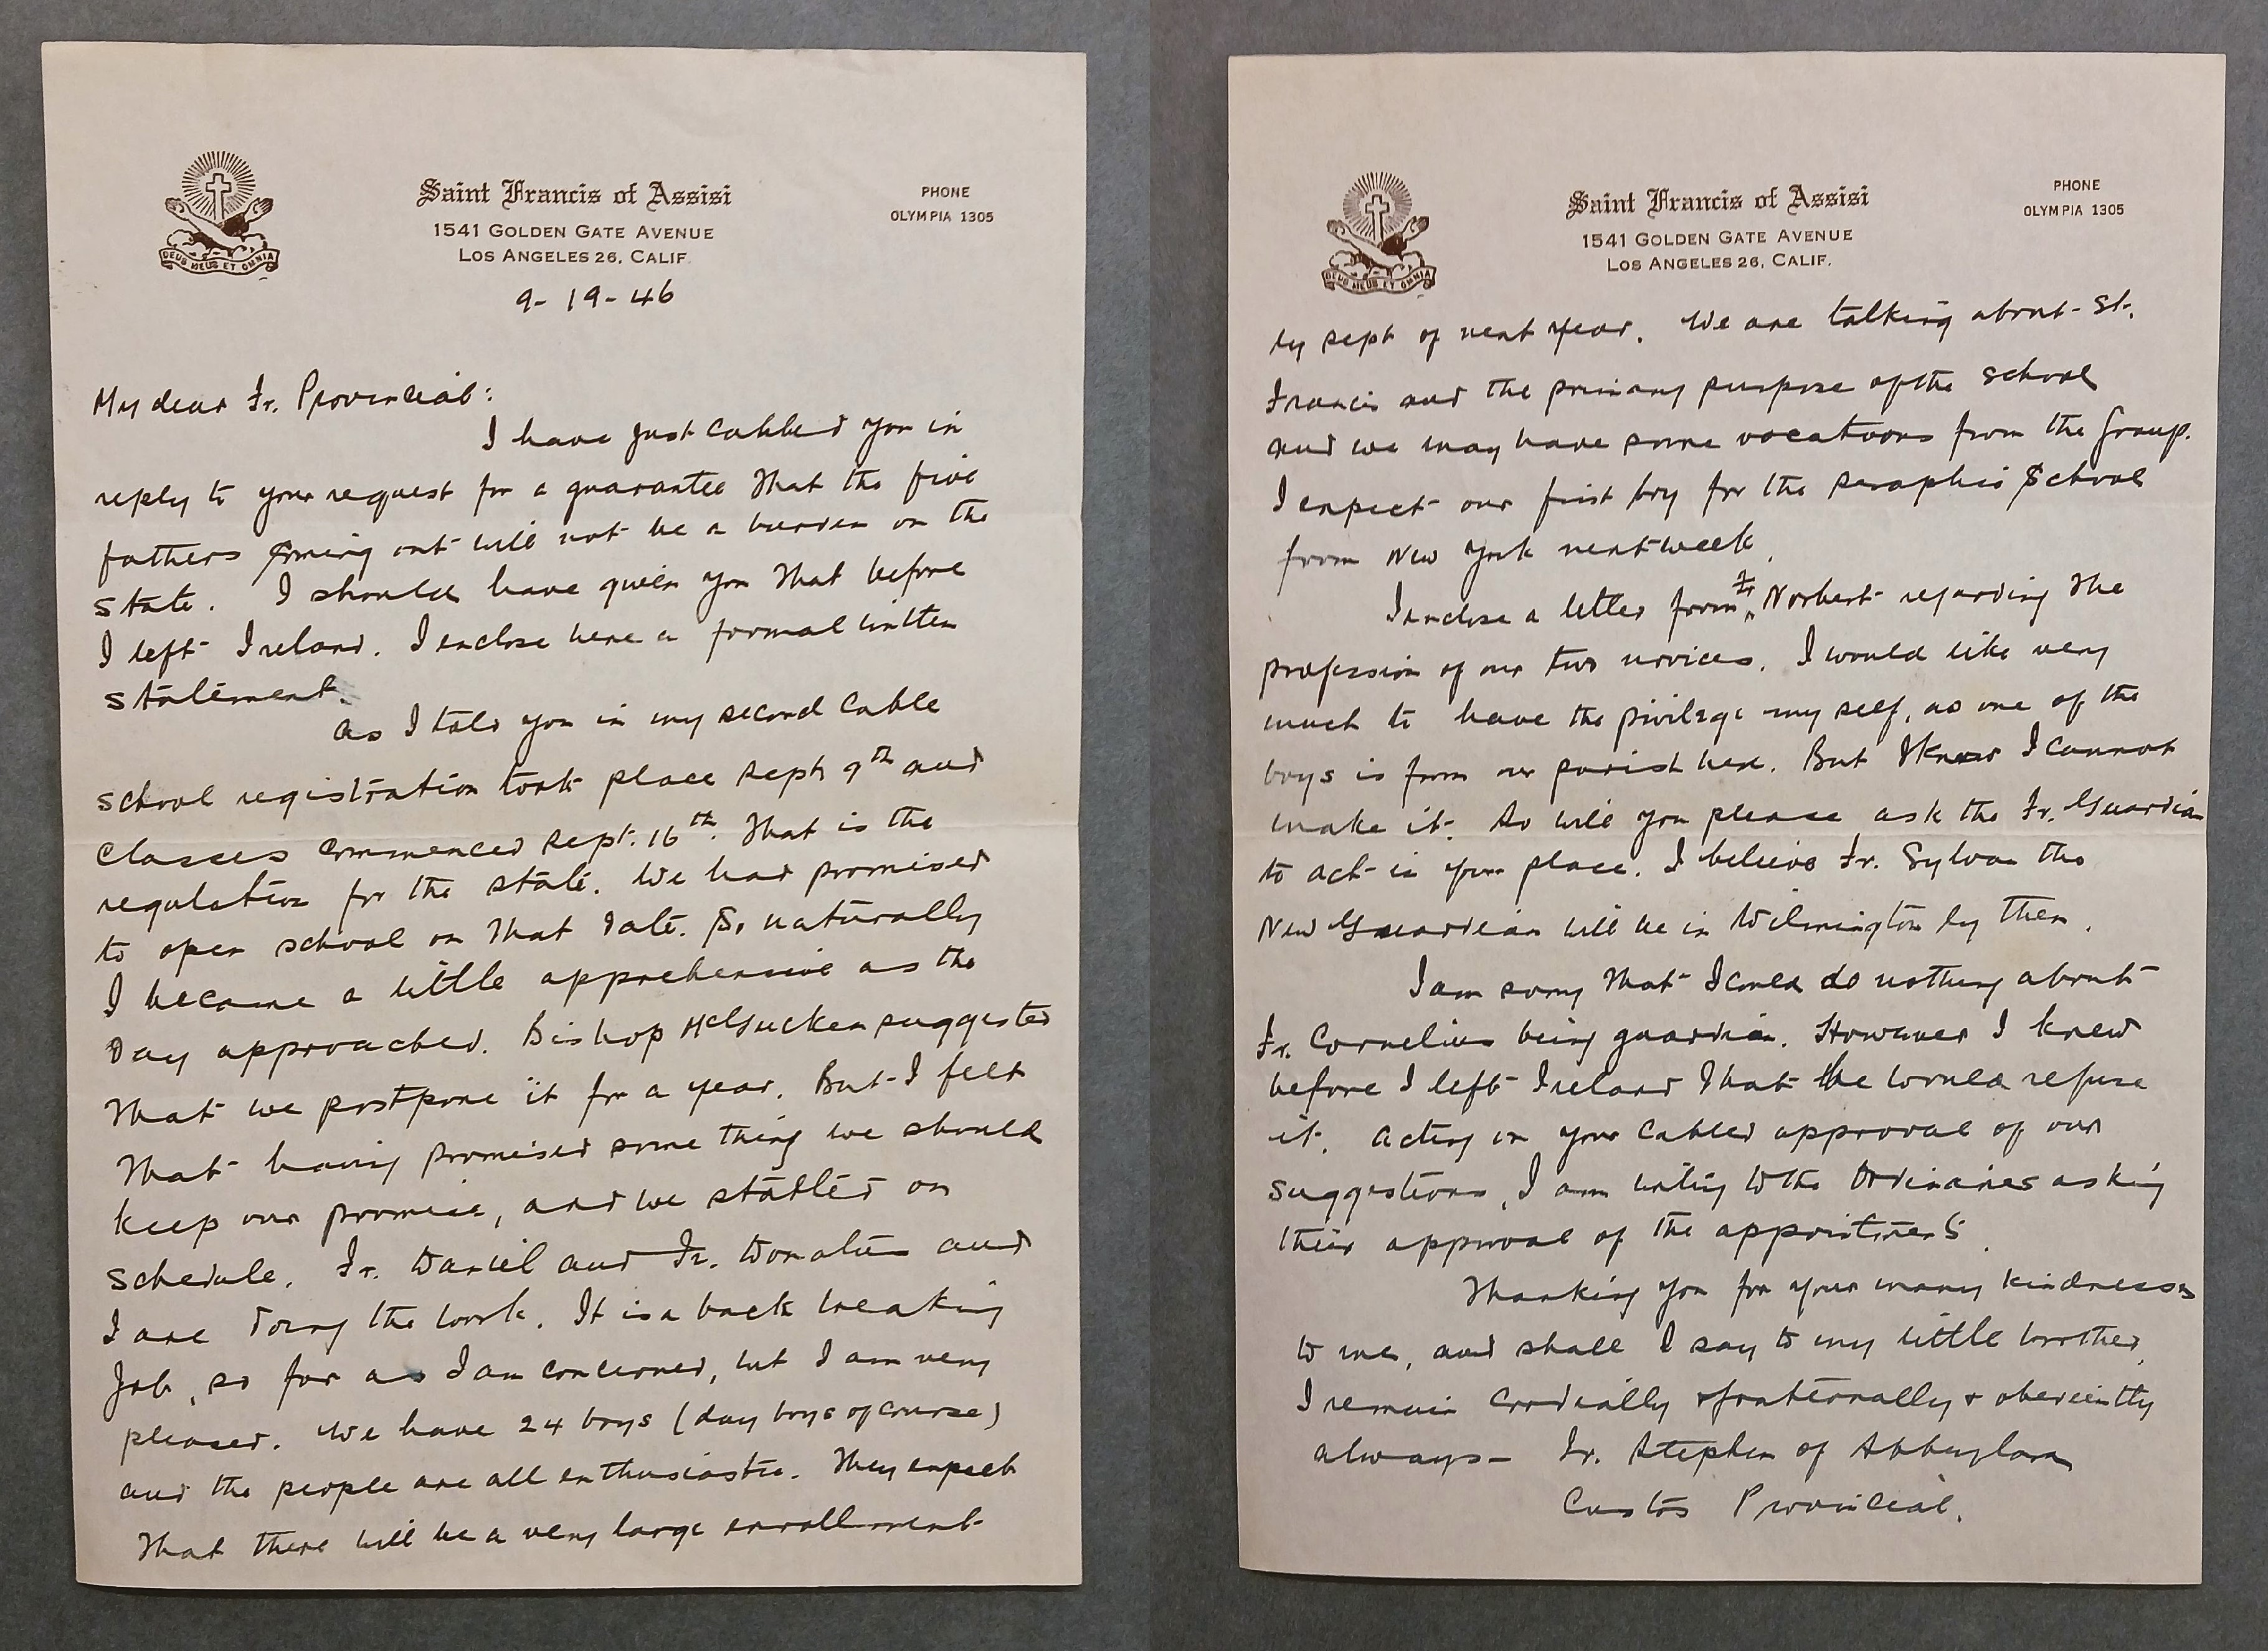 DEUS MEUS ET OMNIA
Saint Francis of Assisi
1541 GOLDEN GATE AVENUE
LOS ANGELES 26, CALIF.
PHONE
OLYMPIA 1305
9-19-46
My dear Fr. Provincial:
I have just cabled you in
reply to your request for a guarantee that the five
fathers coming out will not be a burden on the
state. I should have given you that before
I left Ireland. I enclose here a formal written
statement.
As I told you in my second cable
school registration took place Sept 9th and
classes commenced Sept. 16th. That is the
regulation for the state. We had promised
to open school on that date. So naturally
I became a little apprehensive as the
day approached. Bishop McGucken suggested
that we postpone it for a year. But I felt
that having promised some thing we should
keep our promise, and we started on
schedule. Fr. Daniel and Fr. Donatus and
I are doing the work. It is a back breaking
job, so far as I am concerned, but I am very
pleased. We have 24 boys (day boys of course)
and the people are all enthusiastic. They expect
that there will be a very large enrollment
DEUS MEUS ET OMNIA
Saint Francis of Assisi
1541 GOLDEN GATE AVENUE
LOS ANGELES 26, CALIF.
PHONE
OLYMPIA 1305
by Sept of next year. We are talking about St.
Francis and the primary purpose of the school
and we may have some vocations from the group.
I expect our first boy for the Seraphic School
from New York next week.
I enclose a letter from Fr. Norbert regarding the
profession of our two novices. I would like very
much to have the privilege myself, as one of the
boys is from our parish here. But I know I cannot
make it. So will you please ask the Fr. Guardian
to act in your place. I believe Fr. Sylvan the
New Guardian will be in Wilmington by then.
I am sorry that I could do nothing about
Fr. Cornelius being guardian. However I knew
before I left Ireland that he would refuse
it. Acting on your cabled approval of our
suggestions, I am writing to the Ordinaries asking
their approval of the appointments.
Thanking you for your many kindnesses
to me, and shall I say to my little brother,
I remain cordially & fraternally & obediently
always - Fr. Stephen of Abbeylara
Custos Provincial.